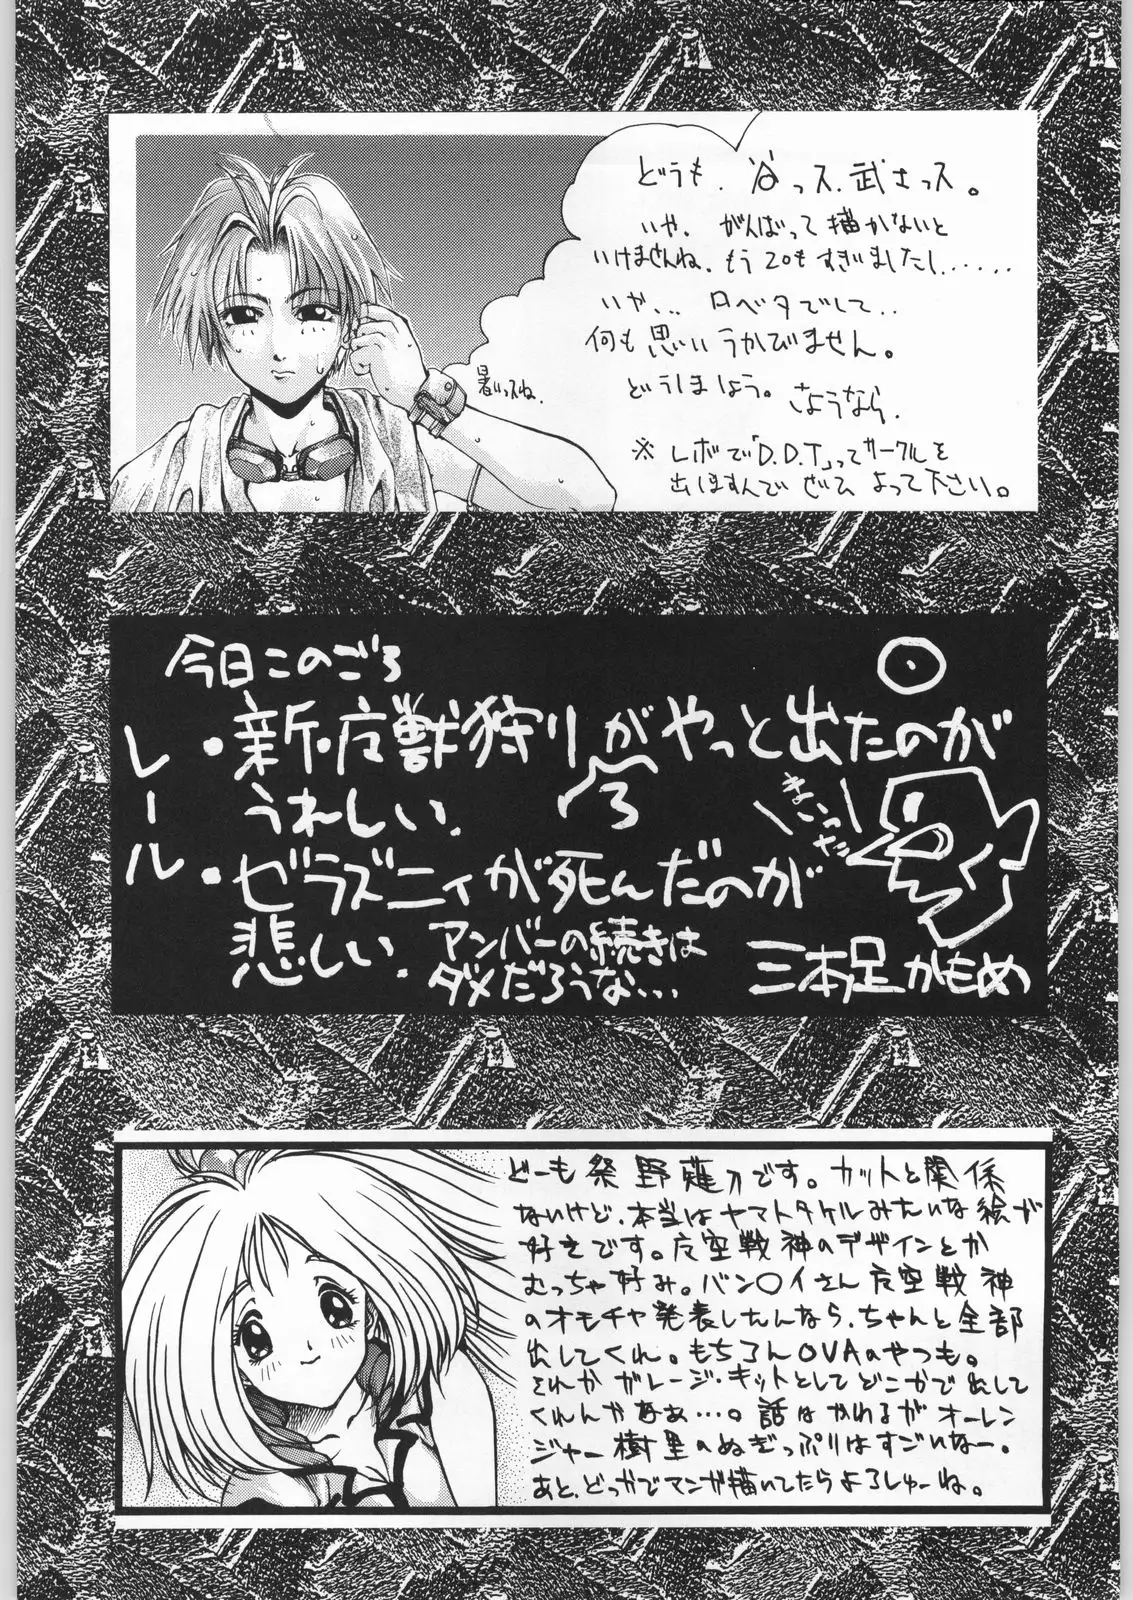 どうも、谷っス、武さっス。
いや、がんばって描かないと
いけませんね、もう20もすぎましたし、.....
いや、、、ロベタでして、、
何も思いうかびません。
どうしましょう。さようなら、
暑いっスね、
※レボで「D.D.T」ってサークルを
出ほすんで ぜひ よって下さい。
今日このごろ
・新・魔獣狩りがやっと出たのが
3
うれしい。
・ゼラズニィが死んだのが
悲しい。アンバーの続きは
ダメだろうな...
レール
三本足かもめ
どーも祭野薙刀です。カットと関係
ないけど、本当はヤマトタケルみたいな絵が
好きです。魔空戦神のデザインとか
むっちゃ好み。バン〇イさん魔空戦神
のオモチャ発表したんなら、ちゃんと全部
出してくれ。もちろんOVAのやつも。
それかガレージ・キットとしてどこかで出して
くれんかなぁ...。話はかわるがオーレン
ジャー樹里のぬぎっぷりはすごいなー。
あと、どっかでマンガ描いてたらよろしゅーね。